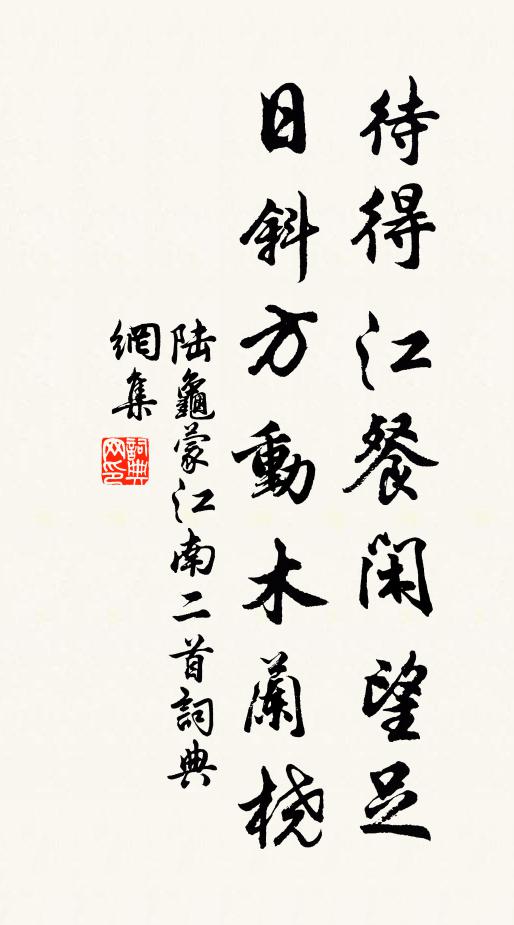 待得江餐閑望足
日斜方動木蘭橈
陆龜蒙江南二首詞典
網集
詞典
网印